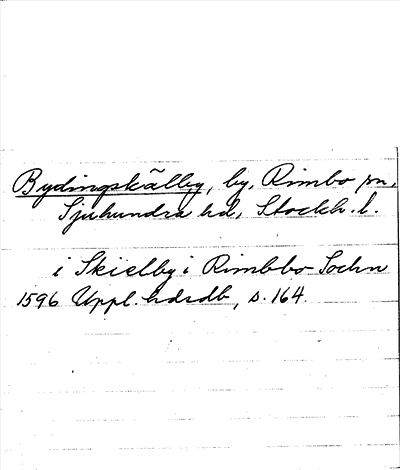 Bydingskälby, by, Rimbo sn,
Sjuhundra hd, Stockh. l.
i Skielby i Rimbbo Sochn
1596 Uppl. hdrdb, s. 164.